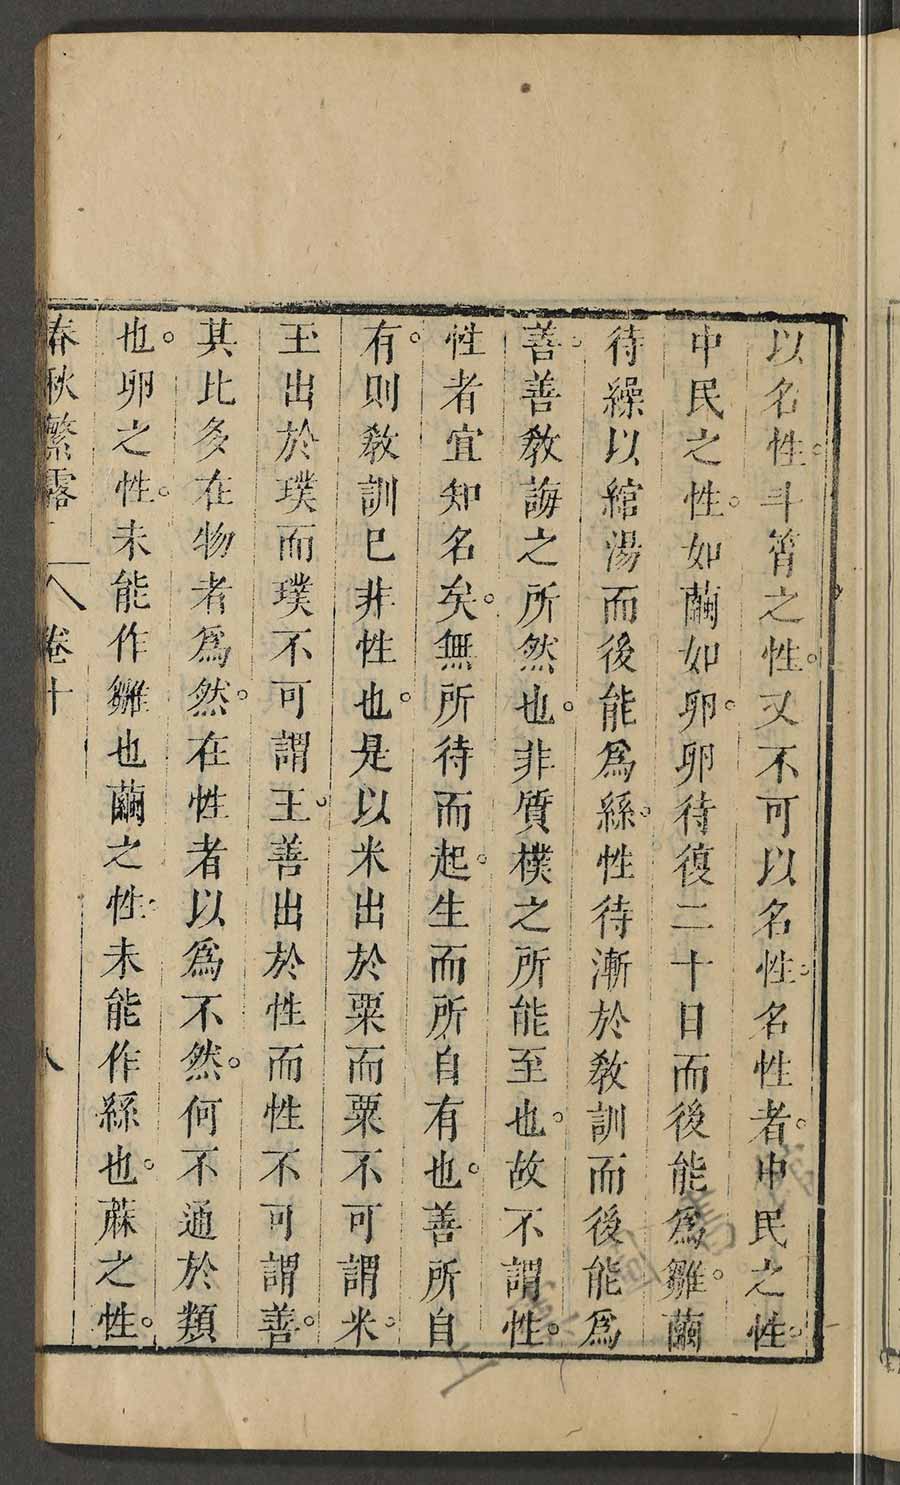 以名性。斗筲之性。又不可以名性。名性者。中民之性。
中民之性。如繭如卵。卵待復二十日而後能爲雛。繭
待繰以綰湯而後能爲絲。性待漸於教訓而後能爲
善。善教誨之所然也。非質樸之所能至也。故不謂性。
性者宜知名矣。無所待而起。生而所自有也。善所自
有。則教訓已非性也。是以米出於粟而粟不可謂米。
玉出於璞而璞不可謂玉。善出於性而性不可謂善。
其比多在物者爲然。在性者以爲不然。何不通於類
也。卵之性。未能作雛也繭之性。未能作絲也。蔴之性。
春秋繁露 卷十 八